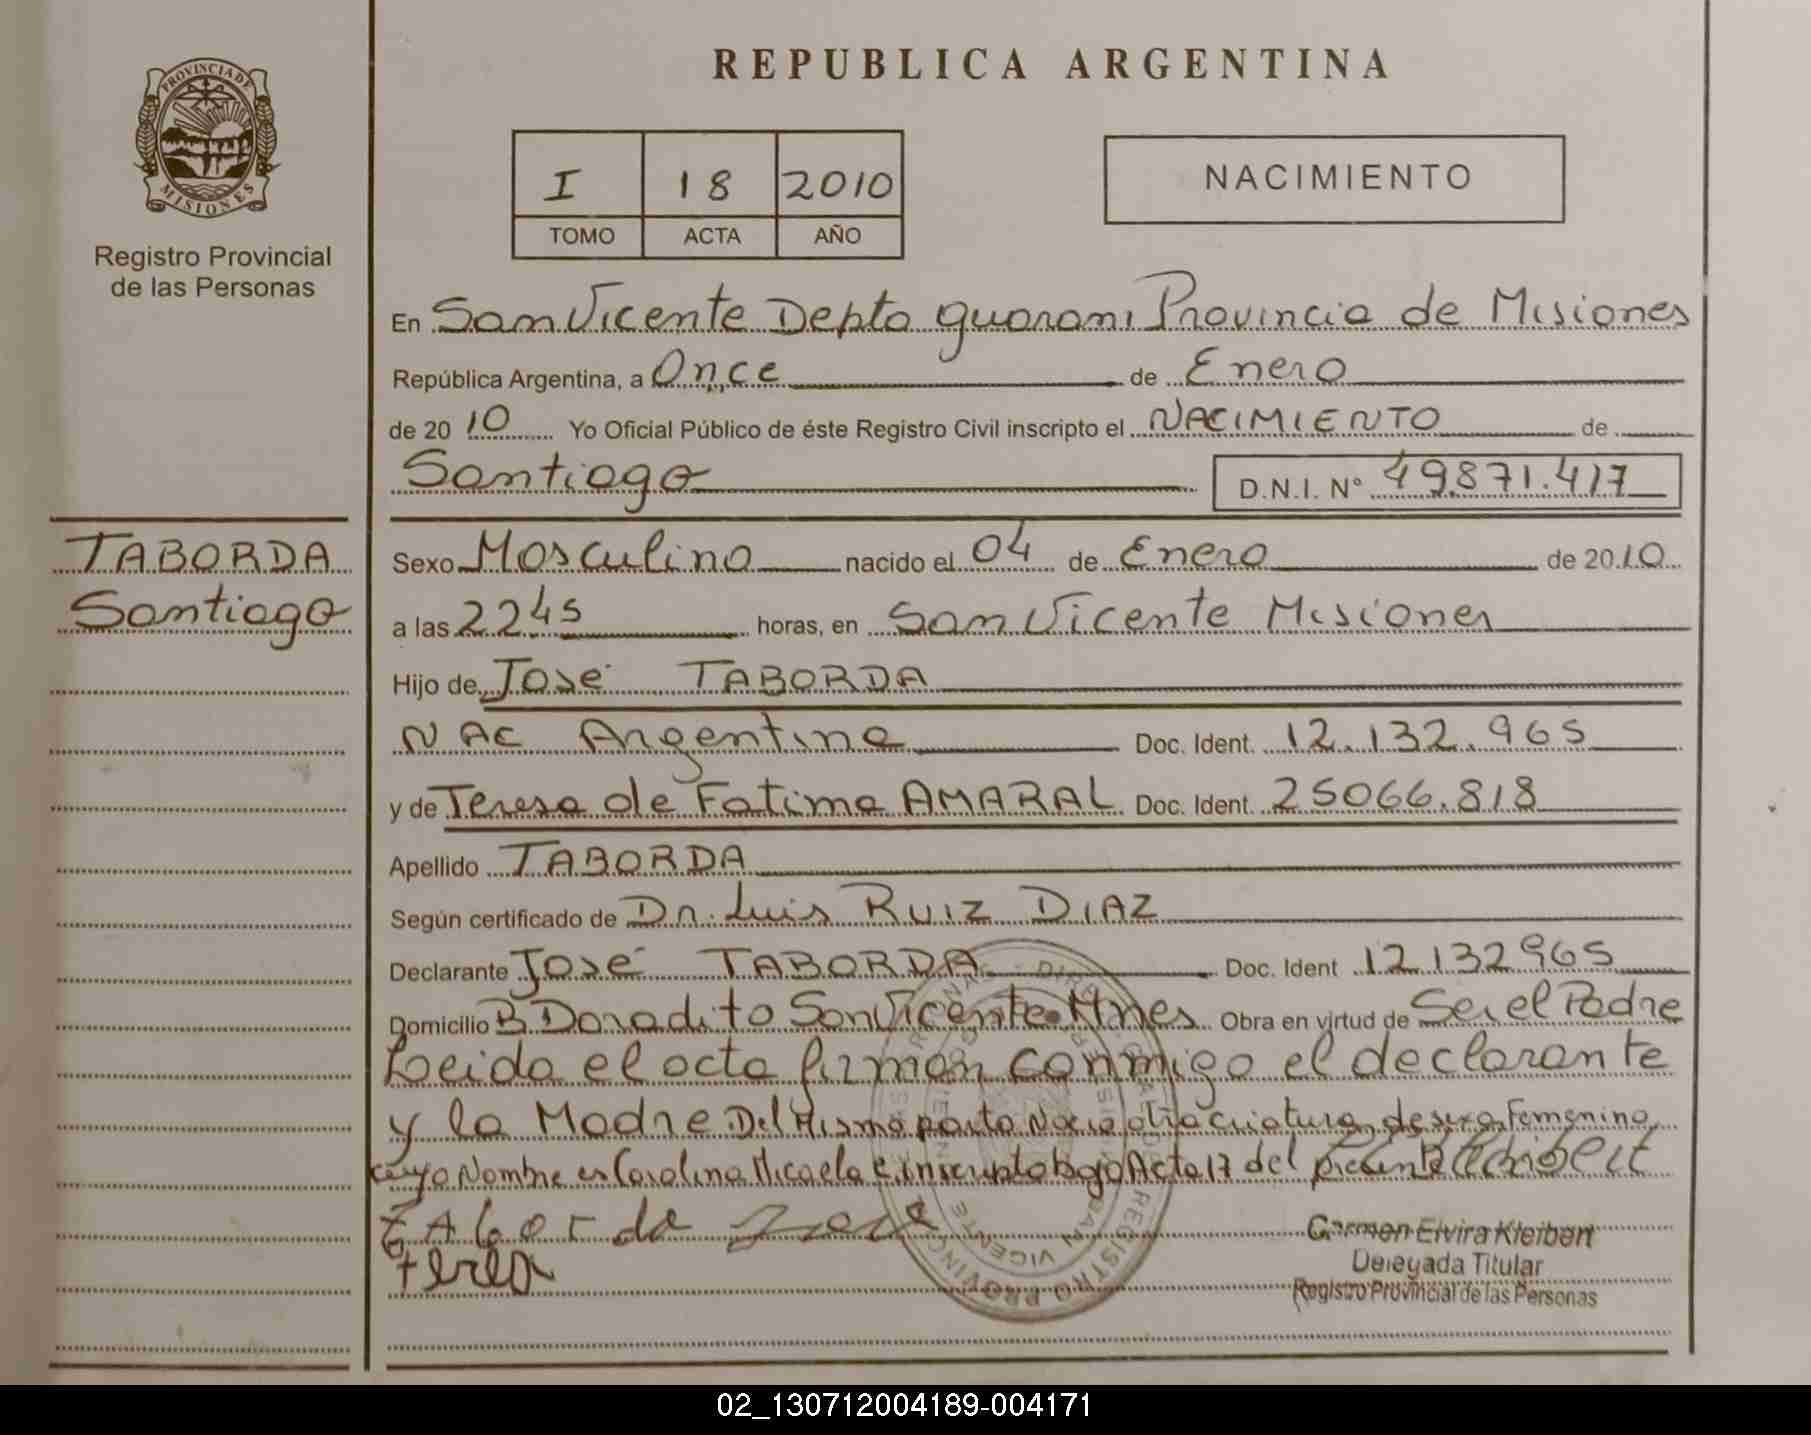 REPUBLICA ARGENTINA
PROVINCIA DE
MISIONES
Registro Provincial
de las Personas
I 18 2010
TOMO ACTA AÑO
NACIMIENTO
En San Vicente Depto guarani Provincia de Misiones
República Argentina, a Once de Enero
de 2010 Yo Oficial Público de éste Registro Civil inscripto el NACIMIENTO de
Santiago D.N.I. Nº 49.871.417
TABORDA
Santiago
Sexo Masculino nacido el 04 de Enero de 2010
a las 2245 horas, en San Vicente Misiones
Hijo de José TABORDA
NAC Argentina Doc. Ident. 12.132.965
y de Teresa de Fatima AMARAL Doc. Ident. 25066.818
Apellido TABORDA
Según certificado de Dr. Luis RUIZ DIAZ
Declarante José TABORDA Doc. Ident 12.132965
Domicilio B Doradito San Vicente Mnes Obra en virtud de Ser el Padre
Leida el acta firman conmigo el declarante
y la Madre Del Mismo parto Nacio otra criatura de sexo Femenino
cuyo Nombre es Carolina Micaela e inscripto bajo Acta 17 del presente
Taborda Jose
teresa
Carmen Elvira Kleibert
Delegada Titular
Registro Provincial de las Personas
02_130712004189-004171